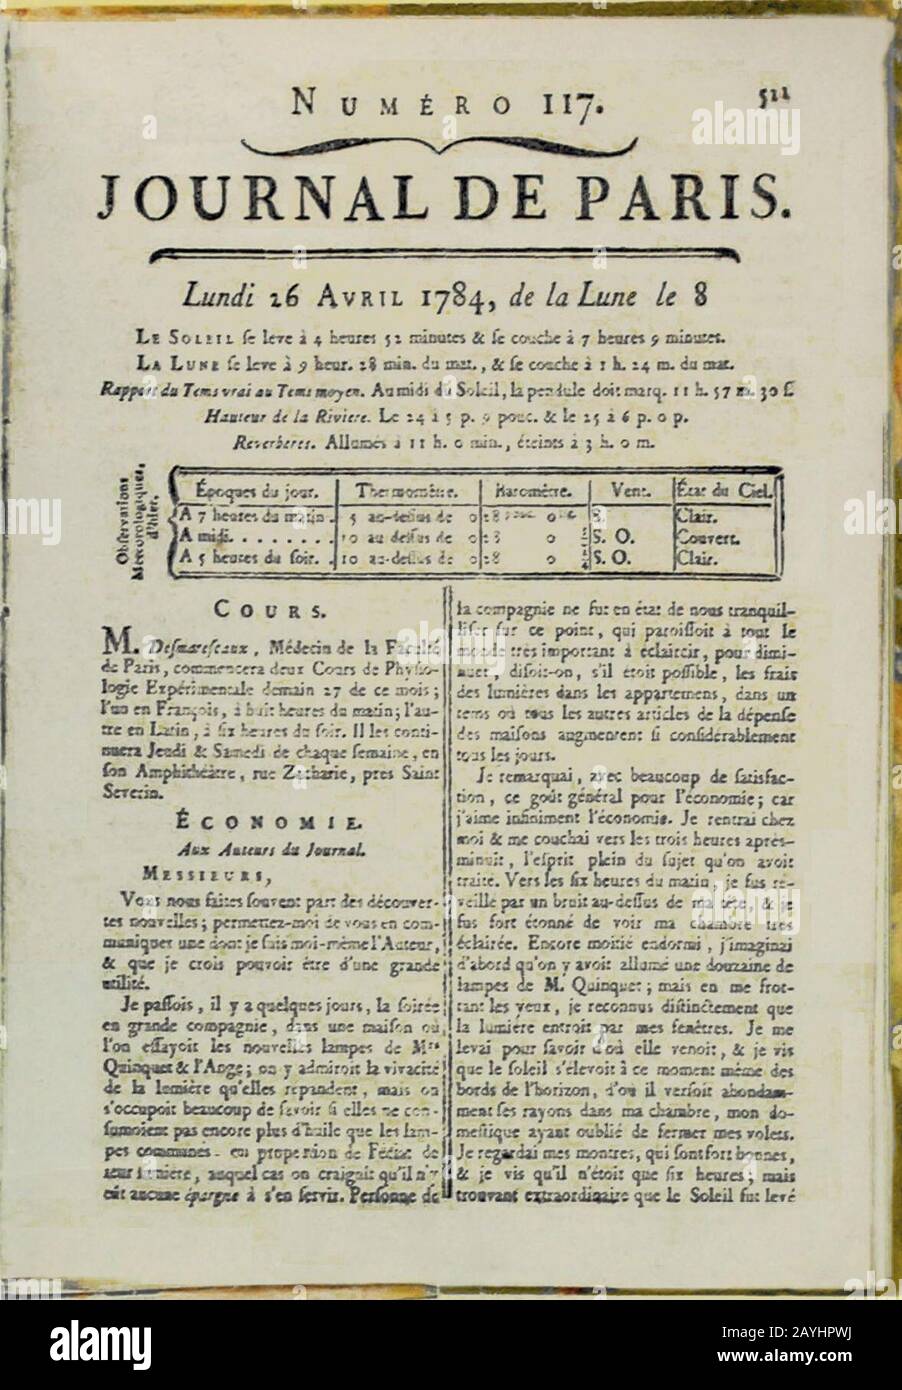 NUMÉRO 117.
511
JOURNAL DE PARIS.
Lundi 26 AVRIL 1784, de la Lune le 8
LE SOLEIL se leve à 4 heures 52 minutes & se couche à 7 heures 9 minutes.
LA LUNE se leve à 9 heur. 28 min. du mat., & se couche à 1 h. 24 m. du mat.
Rapport du Tems vrai au Tems moyen. Au midi du Soleil, la pendule doit marq. 11 h. 57 m. 30 s.
Hauteur de la Riviere. Le 24 à 5 p. 9 pouc. & le 25 à 6 p. 0 p.
Reverberes. Allumés à 11 h. 0 min., éteints à 3 h. 0 m.
Observations Météorologiques, d'hier.
Époques du jour. Thermomètre. Baromètre. Vent. État du Ciel.
A 7 heures du matin. 5 au-dessus de 0 28 0 S. Clair.
A midi. . . . . . . . 10 au-dessus de 0 28 0 S. O. Couvert.
A 5 heures du soir. 10 au-dessus de 0 28 0 S. O. Clair.
COURS.
M. Desmaresceaux, Médecin de la Faculté
de Paris, commencera deux Cours de Physio-
logie Expérimentale demain 27 de ce mois;
l'un en François, à huit heures du matin; l'au-
tre en Latin, à six heures du soir. Il les conti-
nuera Jeudi & Samedi de chaque semaine, en
son Amphithéâtre, rue Zacharie, près Saint
Severin.
ÉCONOMIE.
Aux Auteurs du Journal.
MESSIEURS,
Vous nous faites souvent part des découver-
tes nouvelles; permettez-moi de vous en com-
muniquer une dont je suis moi-même l'Auteur,
& que je crois pouvoir être d'une grande
utilité.
Je passois, il y a quelques jours, la soirée
en grande compagnie, dans une maison où
l'on essayoit les nouvelles lampes de Mrs
Quinquet & l'Ange; on y admiroit la vivacité
de la lumière qu'elles répandent, mais on
s'occupoit beaucoup de savoir si elles ne con-
sumoient pas encore plus d'huile que les lam-
pes communes, en proportion de l'éclat de
leur lumière, auquel cas on craignit qu'il n'y
eût aucune épargne à s'en servir. Personne de
la compagnie ne fut en état de nous tranquil-
liser sur ce point, qui paroissoit à tout le
monde très important à éclaircir, pour dimi-
nuer, disoit-on, s'il étoit possible, les frais
des lumières dans les appartemens, dans un
tems où tous les autres articles de la dépense
des maisons augmentent si considérablement
tous les jours.
Je remarquai, avec beaucoup de satisfac-
tion, ce goût général pour l'économie; car
j'aime infiniment l'économie. Je rentrai chez
moi & me couchai vers les trois heures après-
minuit, l'esprit plein du sujet qu'on avoit
traité. Vers les six heures du matin, je fus ré-
veillé par un bruit au-dessus de ma tête, & je
fus fort étonné de voir ma chambre très
éclairée. Encore moitié endormi, j'imaginai
d'abord qu'on y avoit allumé une douzaine de
lampes de M. Quinquet; mais en me frot-
tant les yeux, je reconnus distinctement que
la lumière entroit par mes fenêtres. Je me
levai pour savoir d'où elle venoit, & je vis
que le soleil s'élevoit à ce moment même des
bords de l'horizon, d'où il versoit abondam-
ment ses rayons dans ma chambre, mon do-
mestique ayant oublié de fermer mes volets.
Je regardai mes montres, qui sont fort bonnes,
& je vis qu'il n'étoit que six heures; mais
trouvant extraordinaire que le Soleil fut levé
alamy
Image ID: 2AYHPWJ
www.alamy.com